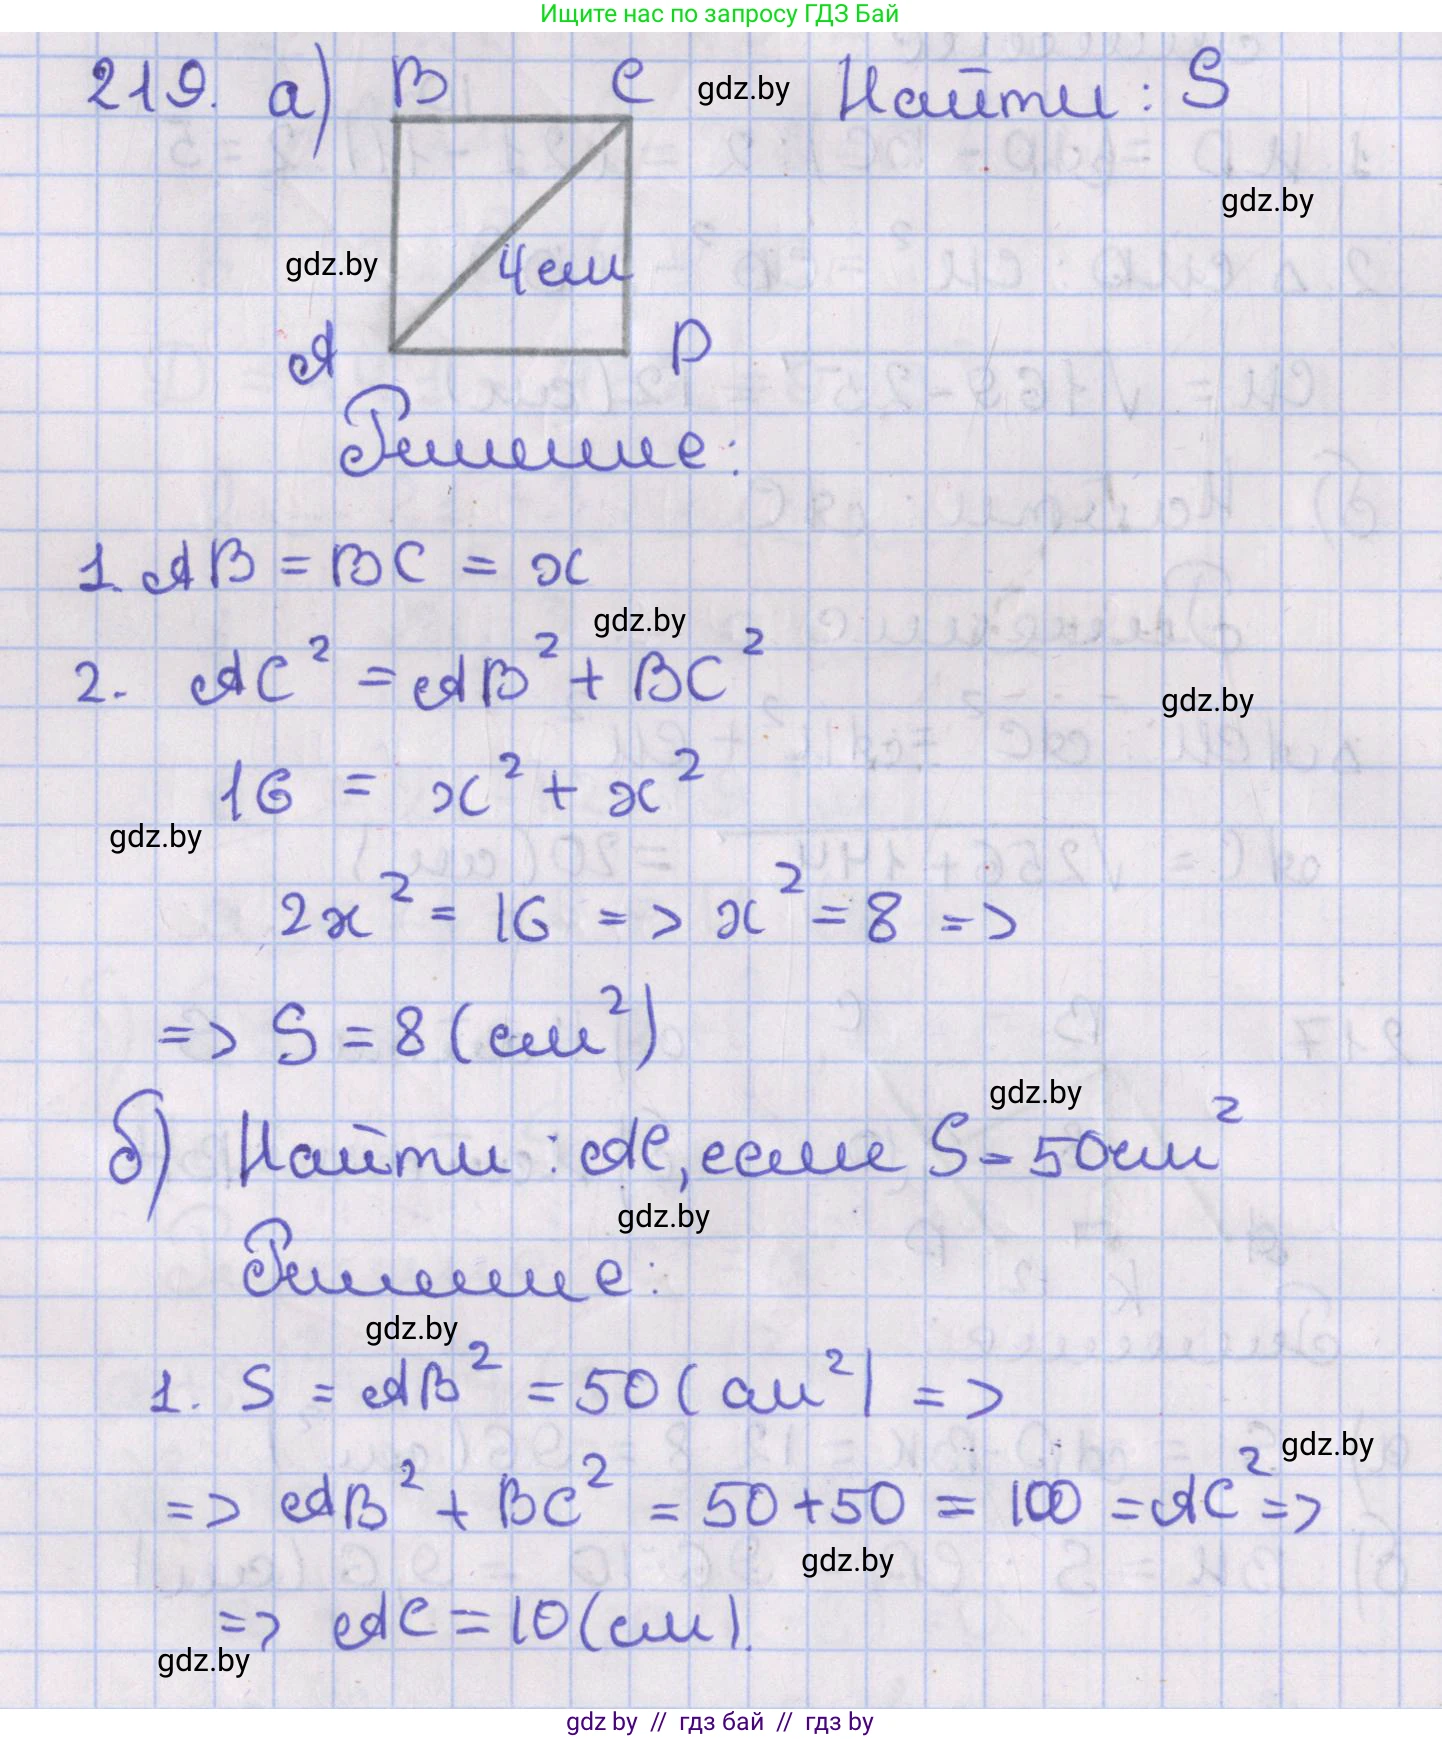 Ищите нас по запросу ГДЗ Бай
219. а) B C gdz.by Найти: S
gdz.by
gdz.by 4см
A D
Решение:
1. AB = BC = x
gdz.by
2. AC² = AB² + BC²
gdz.by
16 = x² + x²
gdz.by
2x² = 16 => x² = 8 =>
=> S = 8 (см²)
gdz.by
б) Найти: AC, если S = 50см²
gdz.by
Решение:
gdz.by
1. S = AB² = 50 (см²) =>
gdz.by
=> AB² + BC² = 50 + 50 = 100 = AC² =>
gdz.by
=> AC = 10 (см).
gdz.by
gdz by // гдз бай // гдз by